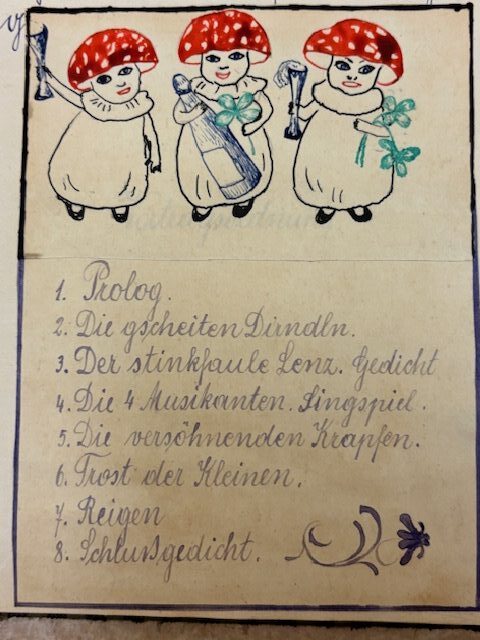 1. Prolog.
2. Die gscheiten Dirndln.
3. Der stinkfaule Lenz. Gedicht
4. Die 4 Musikanten. Singspiel.
5. Die versöhnenden Krapfen.
6. Trost der Kleinen.
7. Reigen
8. Schlußgedicht.